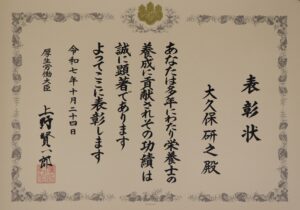 表彰状
大久保研之殿
あなたは多年にわたり栄養士の
養成に貢献されその功績は
誠に顕著であります
よってここに表彰します
令和七年十月二十四日
厚生労働大臣
上野賢一郎